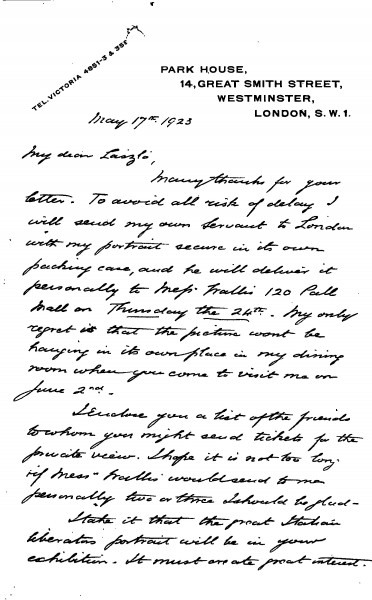 TEL. VICTORIA 4851-3 & 351
PARK HOUSE,
14, GREAT SMITH STREET,
WESTMINSTER,
LONDON, S.W.1.
May 17th 1923
My dear László,
Many thanks for your
letter. To avoid all risk of delay I
will send my own servant to London
with my portrait secure in its own
packing case, and he will deliver it
personally to Messrs Wallis 120 Pall
Mall on Thursday the 24th. My only
regret is that the picture wont be
hanging in its own place in my dining
room when you come to visit me on
June 2nd.
I enclose you a list of the friends
to whom you might send tickets for the
private view. I hope it is not too long
if Messrs Wallis would send to me
personally two or three I should be glad -
I take it that the great Italian
liberators portrait will be in your
exhibition. It must create great interest.